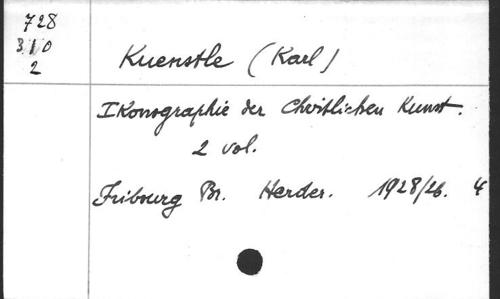 728
310
2
Kuenstle (Karl)
Ikonographie der Christlichen Kunst.
2 vol.
Fribourg Br. Herder. 1928/26. 4